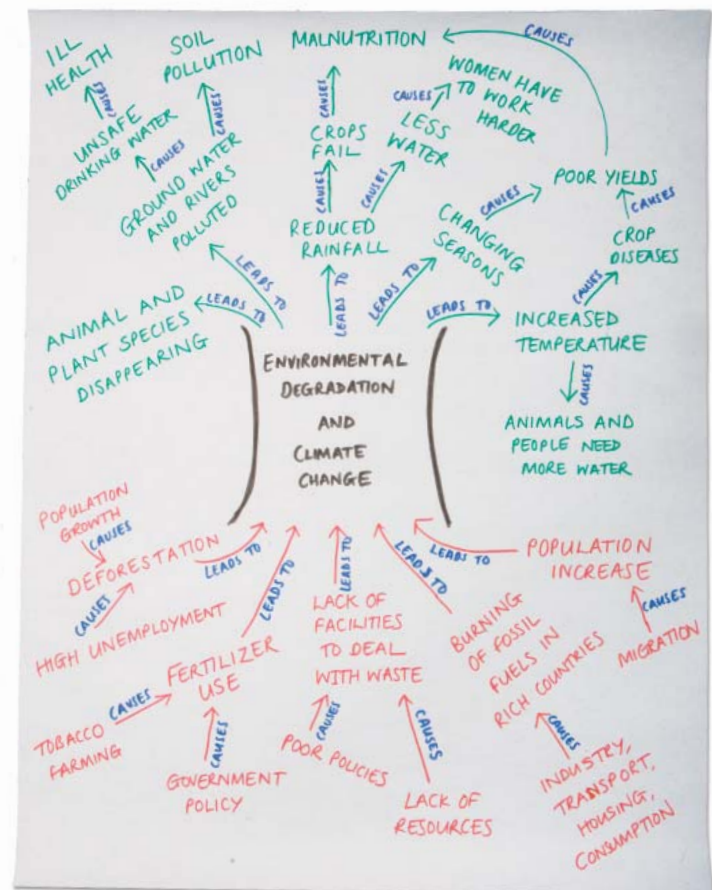 ILL
HEALTH
CAUSES
UNSAFE
DRINKING WATER
CAUSES
SOIL
POLLUTION
CAUSES
GROUND WATER
AND RIVERS
POLLUTED
LEADS TO
MALNUTRITION
CAUSES
CROPS
FAIL
CAUSES
REDUCED
RAINFALL
LEADS TO
CAUSES
WOMEN HAVE
TO WORK
HARDER
CAUSES
LESS
WATER
CAUSES
POOR YIELDS
CAUSES
CHANGING
SEASONS
LEADS TO
CAUSES
CROP
DISEASES
CAUSES
INCREASED
TEMPERATURE
LEADS TO
CAUSES
ANIMALS AND
PEOPLE NEED
MORE WATER
ANIMAL AND
PLANT SPECIES
DISAPPEARING
LEADS TO
ENVIRONMENTAL
DEGRADATION
AND
CLIMATE
CHANGE
POPULATION
GROWTH
CAUSES
DEFORESTATION
LEADS TO
CAUSES
HIGH UNEMPLOYMENT
LEADS TO
FERTILIZER
USE
CAUSES
TOBACCO
FARMING
CAUSES
GOVERNMENT
POLICY
LEADS TO
LACK OF
FACILITIES
TO DEAL
WITH WASTE
CAUSES
POOR POLICIES
CAUSES
LACK OF
RESOURCES
LEADS TO
BURNING
OF FOSSIL
FUELS IN
RICH COUNTRIES
CAUSES
INDUSTRY,
TRANSPORT,
HOUSING,
CONSUMPTION
LEADS TO
POPULATION
INCREASE
CAUSES
MIGRATION